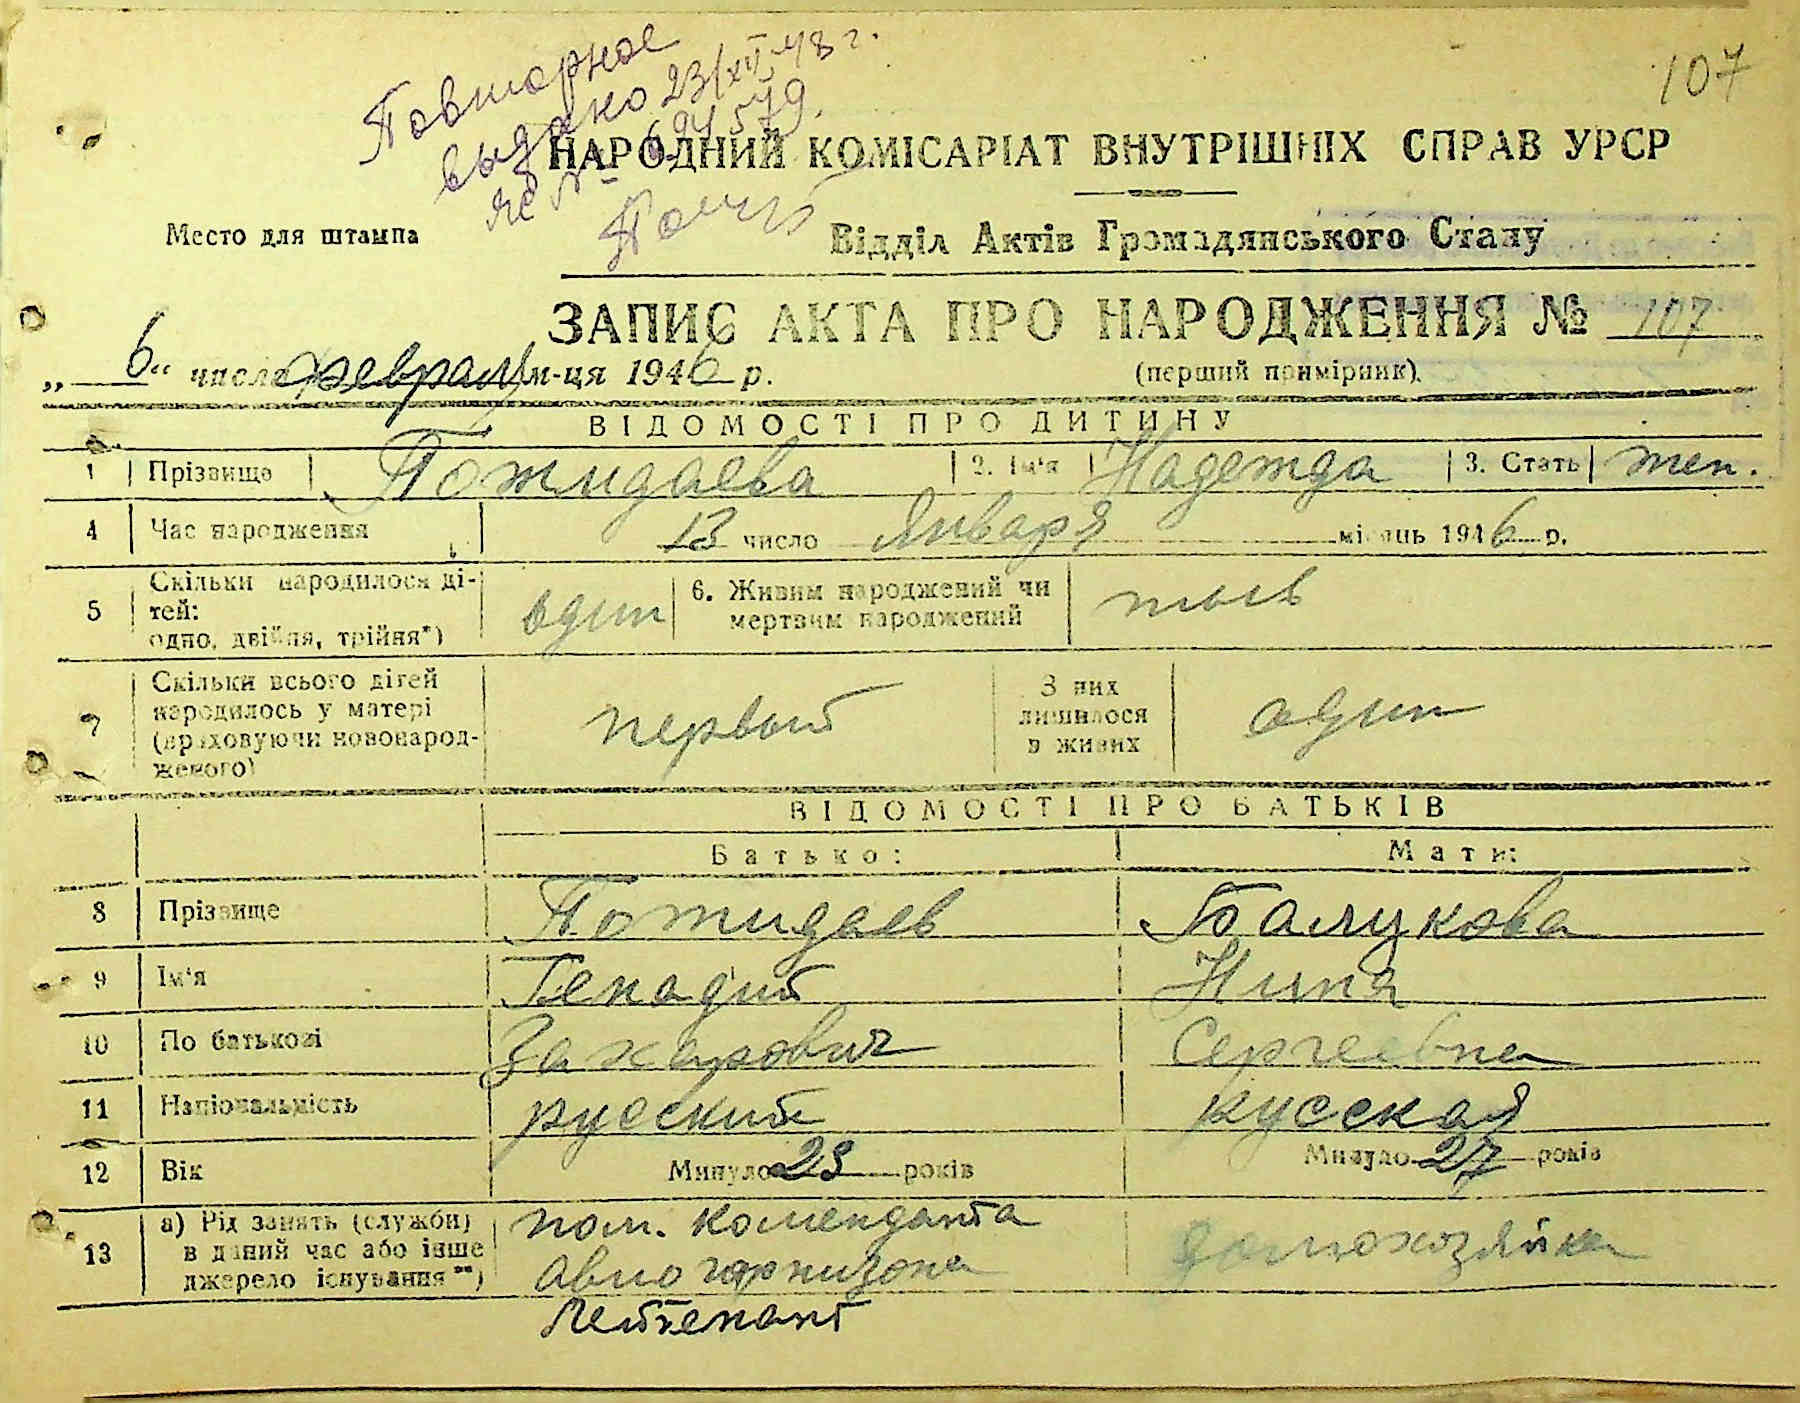 Повторное
выдано 23/XII-48 г.
107
ЯС № 694579.
НАРОДНИЙ КОМІСАРІАТ ВНУТРІШНІХ СПРАВ УРСР
Место для штампа
Відділ Актів Громадянського Стану
ЗАПИС АКТА ПРО НАРОДЖЕННЯ № 107
„ 6 " числа февраля м-ця 1946 р.
(перший примірник).
ВІДОМОСТІ ПРО ДИТИНУ
1 Прізвище Пожидаева 2. Ім'я Надежда 3. Стать жен.
4 Час народження 13 число Января місяць 1946 р.
5 Скільки народилося ді-
тей:
одно, двійня, трійня*) один
6. Живим народжений чи
мертвим народжений
7 Скільки всього дітей
народилось у матері
(враховуючи новонарод-
женого) первый
З них
лишилося
в живих один
ВІДОМОСТІ ПРО БАТЬКІВ
Батько: Мати:
8 Прізвище Пожидаев Балукова
9 Ім'я Генадий Нина
10 По батькові Захарович Сергеевна
11 Національність русский русская
12 Вік Минуло 23 років Минуло 27 років
13 а) Рід занять (служби)
в даний час або інше
джерело існування**)
пом. коменданта
авиогарнизона
Лейтенант
домохозяйка